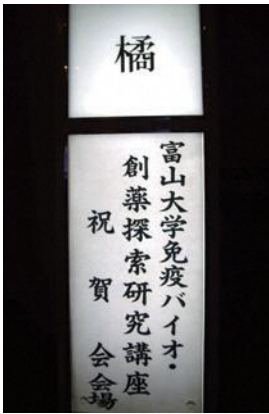 橘
富山大学免疫バイオ・
創薬探索研究講座
祝賀会会場